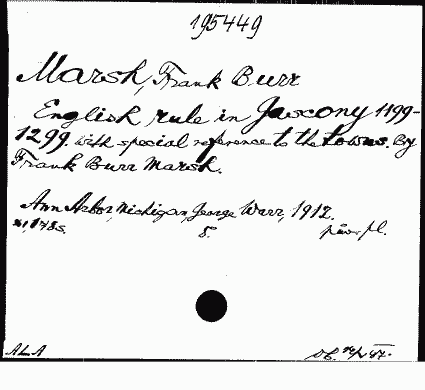 195449
Marsh, Frank Burr
English rule in Gascony 1199-
1299. with special reference to the towns. By
Frank Burr Marsh.
Ann Arbor, Michigan, George Wahr, 1912.
XI, 178s. 8.
ALA